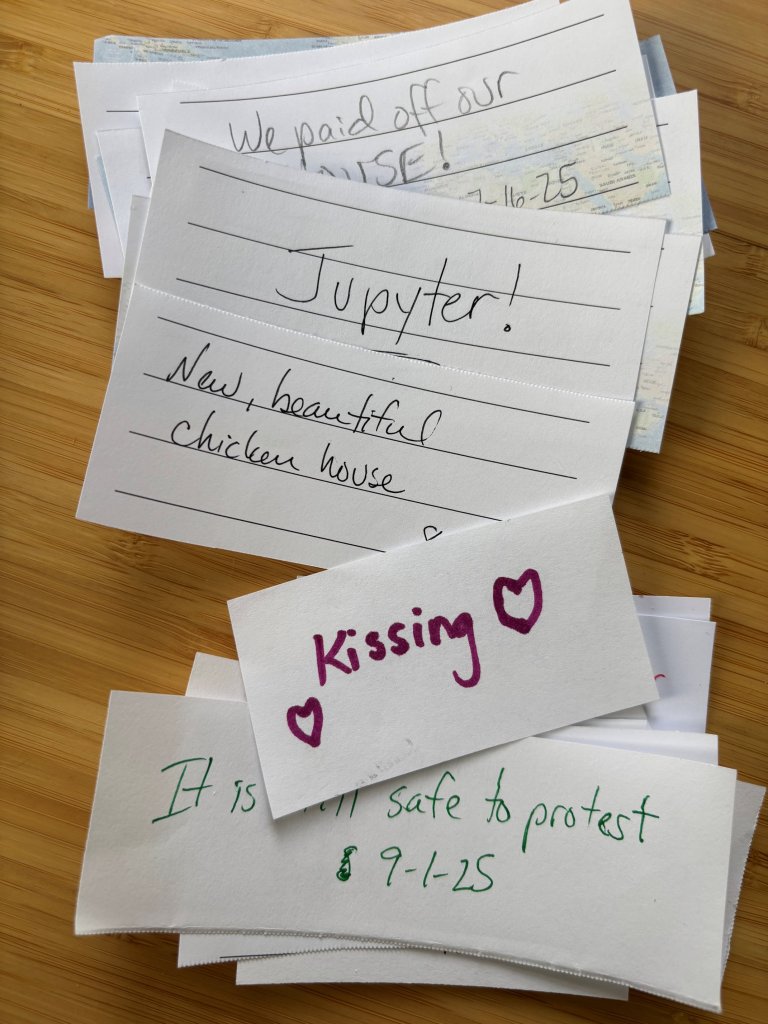 We paid off our
HOUSE!
7-16-25
Jupyter!
New, beautiful
chicken house
Kissing
It is still safe to protest
9-1-25